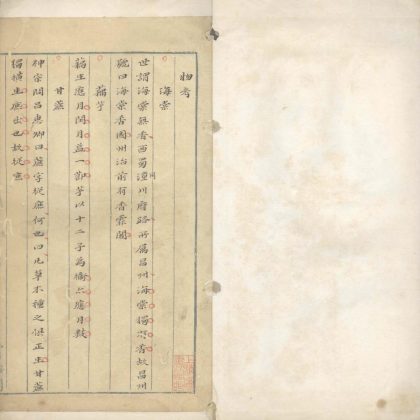 物考
海棠
世謂海棠無香西蜀潼川府路所屬昌州海棠獨香故昌州
號曰海棠香國州治前有香霏閣
藕芋
藕生應月閏月益一節芋以十二子為衛亦應月數
甘蔗
神宗問呂惠卿曰蔗字從庶何也曰凡草木種之俱正生甘蔗
獨橫生庶出也故從庶